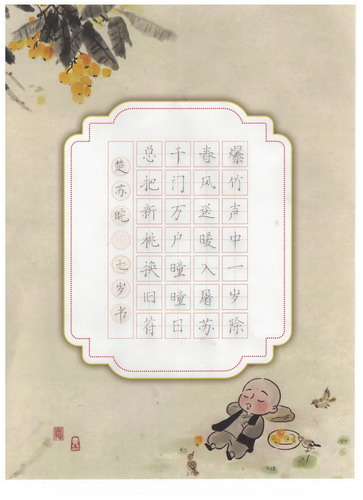 爆竹声中一岁除
春风送暖入屠苏
千门万户曈曈日
总把新桃换旧符
楚苏皖
七岁书